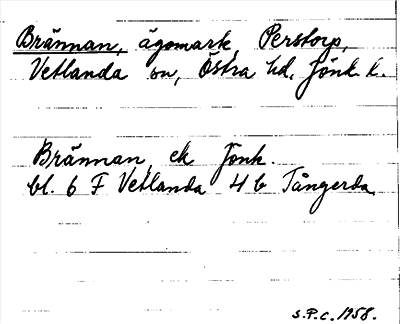 Brännan, ägomark, Perstorp,
Vetlanda sn, Östra hd, Jönk. l.
Brännan, ek Jönk.
bl. 6 F Vetlanda 4 b Tångerda
S.P.C. 1958.